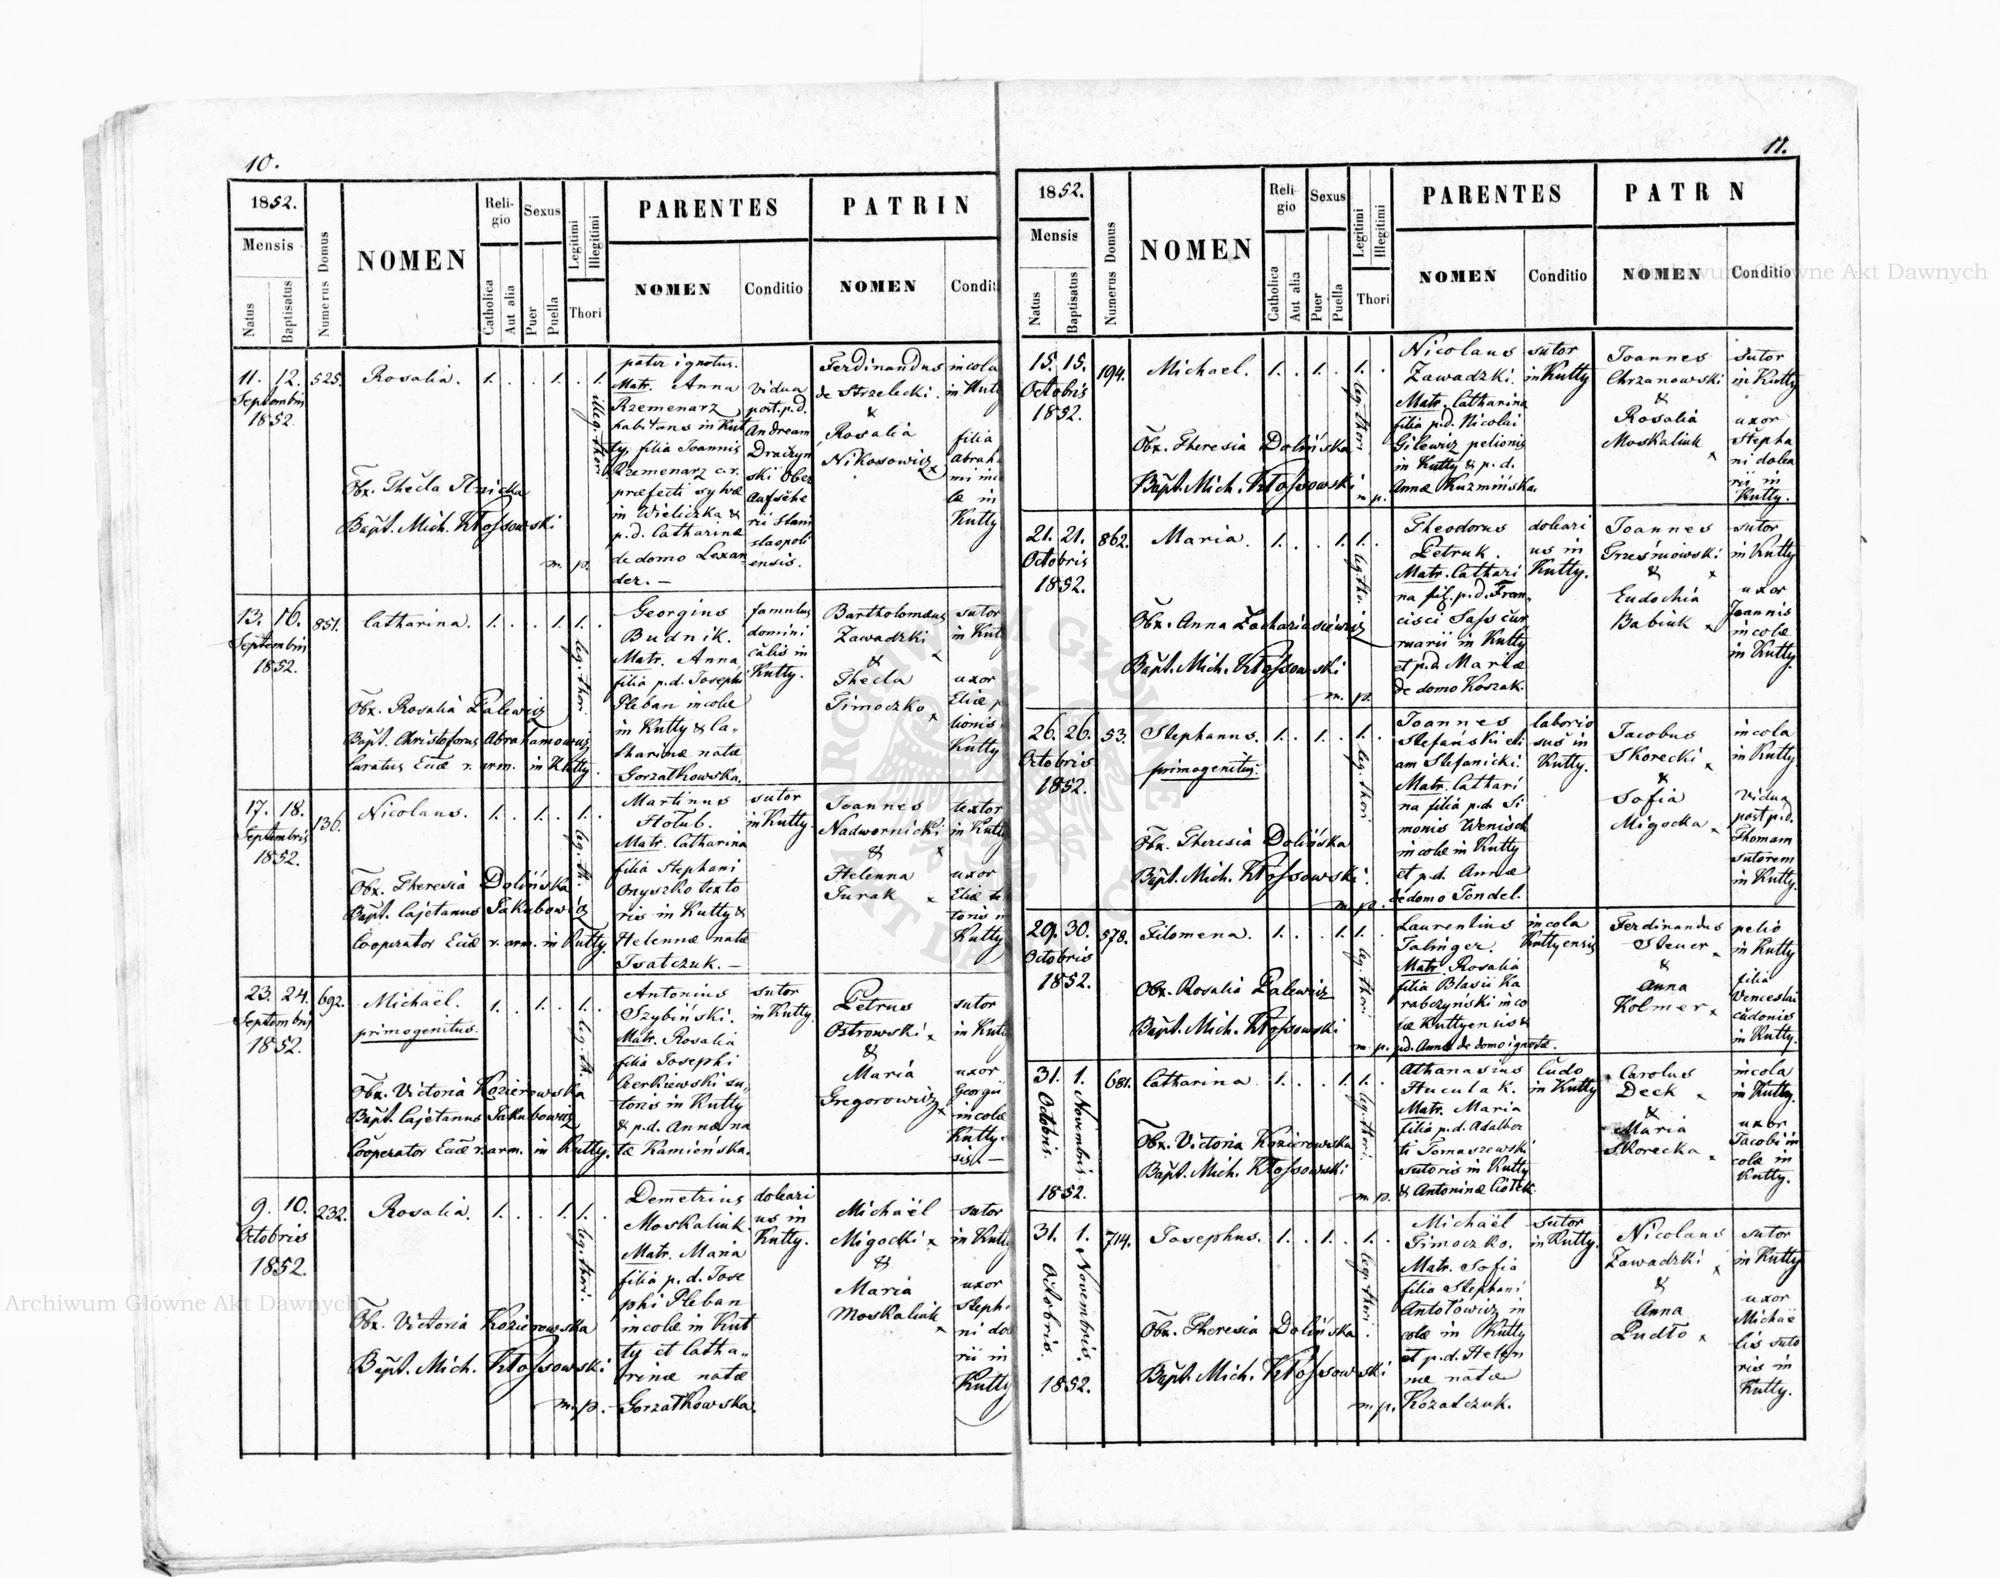 10.
1852.
Mensis
Natus
Baptisatus
Numerus Domus
NOMEN
Reli-
gio
Catholica
Aut alia
Sexus
Puer
Puella
Legitimi
Illegitimi
Thori
PARENTES
NOMEN
Conditio
PATRIN
NOMEN
Condit
11. 12.
Septembris
1852.
525.
Rosalia.
1. . . 1. . 1.
illeg. thori
Obx. Thecla
Bapt. Mich. Kłossowski
m. p.
pater ignotus.
Matr. Anna
Rzemenarz
habitans in Kut
ty, filia Joannis
Rzemenarz c. r.
præfecti sylvæ
in Wieliczka &
p. d. Catharinæ
de domo Lexan
der. —
vidua
post. p. d.
Andream
Drażyn
ski Ober
aufsehe
rii Stani
slaopoli
ensis.
Ferdinandus
de Strzelecki.
&
Rosalia
Nikosowicz x
incola
in Kutty
filia
Abrah
mi in
læ in
Kutty
13. 16.
Septembris
1852.
851.
Catharina.
1. . . 1. 1. .
leg. thori.
Obx. Rosalia Palewicz
Bapt. Christoforus Abrahamowicz
Curatus Eccl. r. arm. in Kutty.
Georgius
Budnik.
Matr. Anna
filia p. d. Josephi
Pleban incolæ
in Kutty & Ca„
tharinæ natæ
Gorzatkowska.
famulus
domini
calis in
Kutty.
Bartholomæus
Zawadzki
x
&
Thecla
Timoczko x
sutor
in Kut
uxor
Eliæ p
lionis
Kutty
17. 18.
Septembris
1852.
136.
Nicolaus.
1. . 1. . 1. .
leg. th.
Obx. Theresia Dolińska
Bapt. Cajetanus Jakubowicz
Cooperator Eccl. r. arm. in Kutty.
Martinus
Hołub.
Matr. Catharina
filia Stephani
Onyszko texto
ris in Kutty &
Helennæ natæ
Isatczuk. —
sutor
in Kutty.
Joannes
Nadwornicki
& x
Helenna
Turak x
textor
in Kutty
uxor
Eliæ te
toris in
Kutty
23. 24.
Septembris
1852.
692.
Michaël.
primogenitus.
1. . 1. . 1. .
leg. th.
Obx. Victoria Kozierowska
Bapt. Cajetanus Jakubowicz
Cooperator Eccl. r. arm. in Kutty.
Antonius
Szybiński.
Matr. Rosalia
filia Josephi
Czerkiewski su„
toris in Kutty
& p. d. Annæ na
tæ Kamieńska.
sutor
in Kutty.
Petrus
Ostrowski x
&
Maria
Gregorowicz x
sutor
in Kutt
uxor
Georgii
incolæ
Kutty-
sis. —
9. 10.
Octobris
1852.
232.
Rosalia.
1. . . 1. 1. .
leg. thori.
Obx. Victoria Kozierowska
Bapt. Mich. Kłossowski
m. p.
Demetrius
Moskaliuk.
Matr. Maria
filia p. d. Jose
phi Pleban
incolæ in Kut
ty et Catha„
rinæ natæ
Gorzatkowska.
doleari
us in
Kutty.
Michaël
Migocki x
&
Maria
Moskaliuk x
sutor
in Kutty
uxor
Steph
ni do
rii in
Kutty
11.
1852.
Mensis
Natus
Baptisatus
Numerus Domus
NOMEN
Reli-
gio
Catholica
Aut alia
Sexus
Puer
Puella
Legitimi
Illegitimi
Thori
PARENTES
NOMEN
Conditio
PATR N
NOMEN
Conditio
15. 15.
Octobris
1852.
194.
Michael.
1. . 1. . 1. .
leg. thori
Obx. Theresia Dolińska
Bapt. Mich. Kłossowski
m. p.
Nicolaus
Zawadzki.
Matr. Catharina
filia p. d. Nicolai
Gilewicz pelionis
in Kutty & p. d.
Annæ Kuzmińska.
sutor
in Kutty
Joannes
Chrzanowski
&
Rosalia
Moskaliuk x
Sutor
in Kutty
uxor
Stepha
ni dolea
rii in
Kutty.
21. 21.
Octobris
1852.
862.
Maria.
1. . . 1. 1. .
leg. thori
Obx. Anna Zachariasiewicz
Bapt. Mich. Kłossowski
m. p.
Theodorus
Petruk.
Matr. Cathari
na fil. p. d. Fran
cisci Sass cur
ruarii in Kutty
et p. d. Mariæ
de domo Koszak.
doleari
us in
Kutty.
Joannes
Grześniowski
& x
Eudochia
Babiuk x
sutor
in Kutty
uxor
Joannis
incolæ
in Kutty.
26. 26.
Octobris
1852.
53.
Stephanus.
primogenitus.
1. . 1. . 1. .
leg. thori
Obx. Theresia Dolińska
Bapt. Mich. Kłossowski.
m. p.
Joannes
Stefański eti
am Stefanicki.
Matr. Cathari
na filia p. d. Si
monis Wenisch
incolæ in Kutty
et p. d. Annæ
de domo Tondel.
laborio
sus in
Kutty.
Jacobus
Skorecki x
&
Sofia
Migocka x
incola
in Kutty
vidua
post p. d.
Thomam
sutorem
in Kutty.
29. 30.
Octobris
1852.
578.
Filomena.
1. . . 1. 1. .
leg. thori.
Obx. Rosalia Palewicz
Bapt. Mich. Kłossowski
m. p.
Laurentius
Talinger.
Matr. Rosalia
filia Blasii Ka
rabczyński inco
læ Kuttyensis &
p. d. Annæ de domo ignotæ.
incola
Kuttyensis
Ferdinandus
Steuer x
&
Anna
Kolmer x
pelio
in Kutty
filia
Venceslai
cudonis
in Kutty.
31. 1.
Octobris.
Novembris
1852.
681.
Catharina.
1. . . 1. 1. .
leg. thori.
Obx. Victoria Kozierowska
Bapt. Mich. Kłossowski
m. p.
Athanasius
Huculak.
Matr. Maria
filia p. d. Adalber
ti Tomaszewski
sutoris in Kutty
& Antoninæ Ciołek.
Cudo
in Kutty
Carolus
Deck x
&
Maria
Skorecka x
incola
in Kutty.
uxor
Jacobi in
colæ in
Kutty.
31. 1.
Octobris.
Novembris.
1852.
714.
Josephus.
1. . 1. . 1. .
leg. thori.
Obx. Theresia Dolińska
Bapt. Mich. Kłossowski
m. p.
Michaël
Timoczko.
Matr. Sofia
filia Stephani
Antołowicz in
colæ in Kutty
et p. d. Helen
næ natæ
Kozatczuk.
Sutor
in Kutty.
Nicolaus
Zawadzki x
&
Anna
Pudło x
sutor
in Kutty
uxor
Michaë
lis suto
ris in
Kutty.
Archiwum Główne Akt Dawnych
Archiwum Główne Akt Dawnych
ARCHIWUM GŁÓWNE AKT DAWNYCH